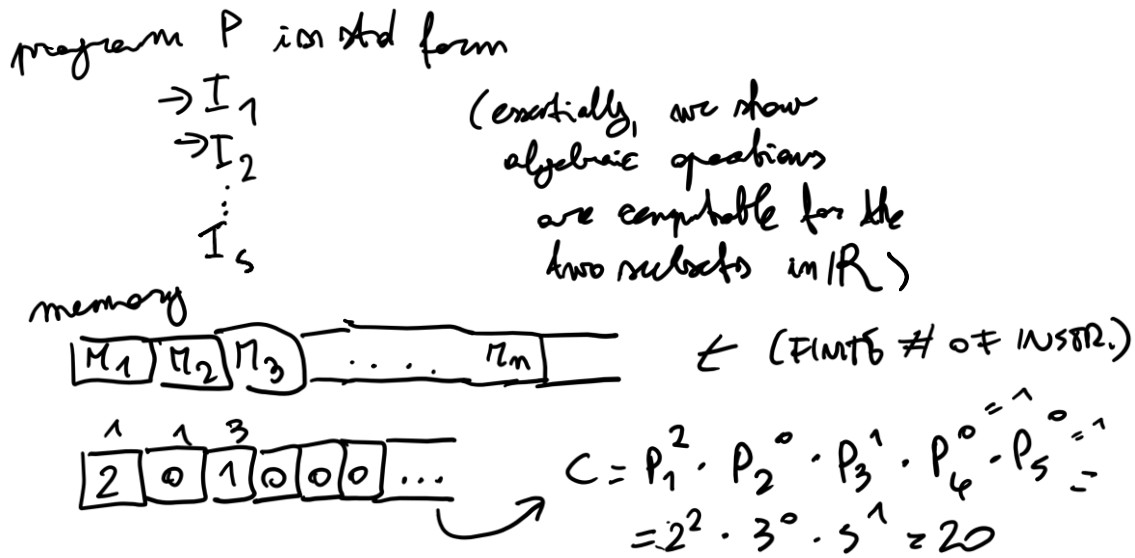 program P in std form
→ I₁
→ I₂
⋮
Iₛ
(essentially, we show
algebraic operations
are computable for the
two subsets in ℝ)
memory
r₁ r₂ r₃ .... rₙ
← (FINITE # OF INSTR.)
1 1 3
2 0 1 0 0 0 ...
C = P₁² · P₂⁰ · P₃¹ · P₄⁰ ⁼ ¹ · P₅⁰ ⁼ ¹ =
= 2² · 3⁰ · 5¹ = 20